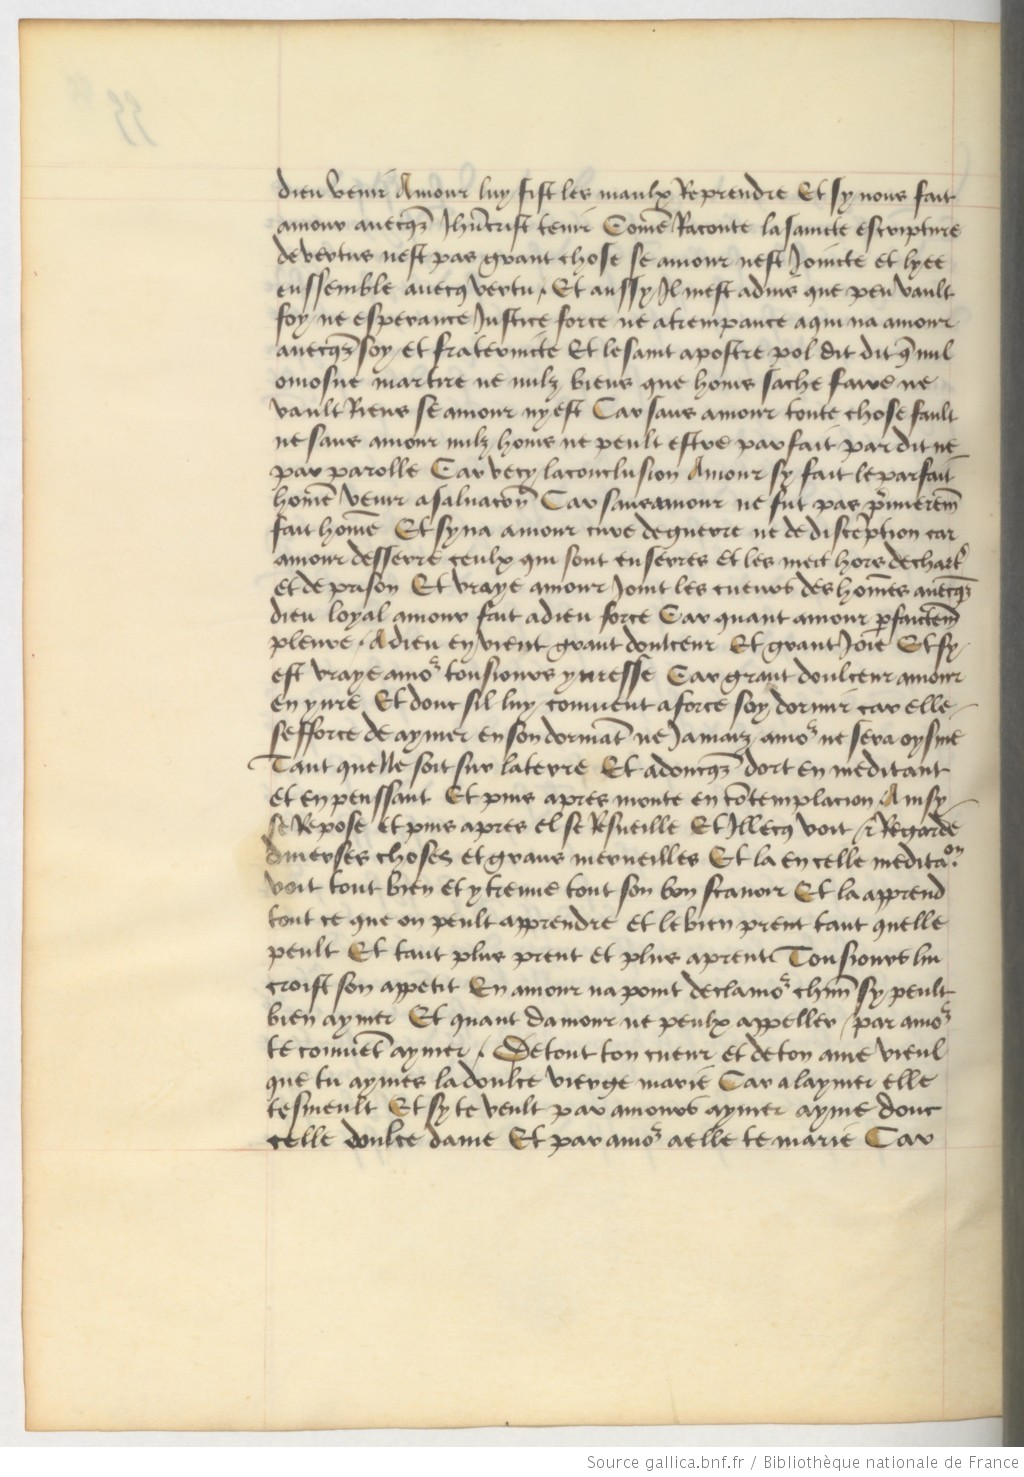 dieu venir Amour luy fist les maulx Reprendre Et sy nous fait
amour avecqz Jhucrist tenir Comẽ Raconte la saincte escripture
de vertus nest pas grant chose se amour nest Joincte et lyee
enssemble avecq vertu. Et aussy Il mest advis que peu vault
foy ne esperance Justice force ne atrempance a qui na amour
avecqz soy et fraternicte Et le saint apostre pol dit dit q̃ nul
omosne martire ne nulz biens que homs sache faire ne
vault Riens se amour ny est Car sans amour toute chose fault
ne sans amour nulz homs ne peult estre parfait par dit ne
par parolle Car vecy la conclusion Amour sy fait le parfait
homẽ venir a salvacoñ Car sans amour ne fut pas p̃mieremẽ
fait homẽ Et sy na amour cure de guerre ne de disception car
amour desserre ceulx qui sont enserres et les mect hors de chartʳ
et de prison Et vraye amour Joint les cueurs des homẽs avecqz
dieu loyal amour fait a dieu force Car quant amour pfaictemẽ
pleure. A dieu en vient grant doulceur Et grant Joie Et sy
est vraye amoʳ tousiours yvresse Car grant doulceur amour
en yvre Et donc sil luy convient a force soy dormir car elle
sefforce de aymer en son dormãt ne Jamaiz amoʳ ne sera oysive
Tant quelle soit sur la terre Et adoncqz dort en meditant
et en penssant Et puis apres monte en cõtemplacion Ainsy
se Repose et puis apres el se Resueille Et Illecq voit et Regarde
diverses choses et grans merveilles Et la en celle meditaᵒⁿ.
voit tout bien et y treuve tout son bon scavoir Et la apprend
tout ce que on peult apprendre et le bien prent tant quelle
peult Et tant plus prent et plus aprent Tousiours lui
croist son appetit En amour na point de clamoʳ chũn sy peult
bien aymer Et quant damour ne peulx appeller / par amoʳ
te conviẽt aymer. De tout ton cueur et de ton ame vieul
que tu aymes la doulce vierge marie Car a laymer elle
tesmeult Et sy te veult par amours aymer ayme donc
celle doulce dame Et par amoʳ a elle te marie Car
Source gallica.bnf.fr / Bibliothèque nationale de France